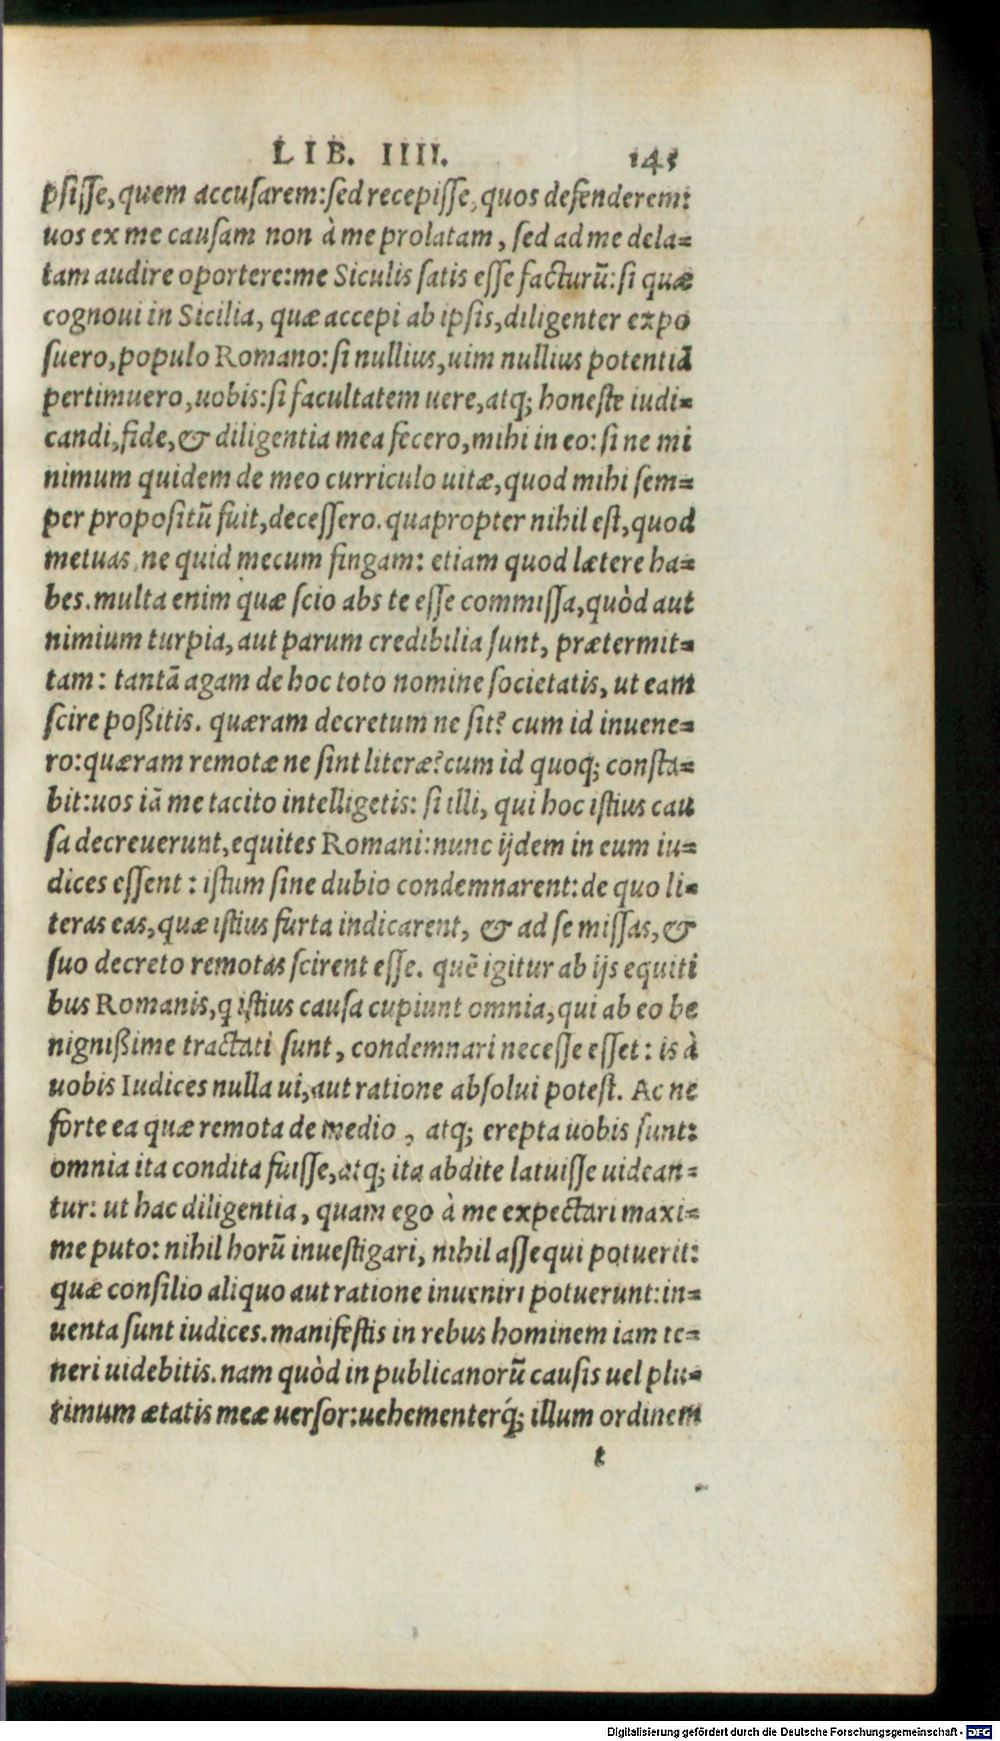 LIB. IIII. 145
psisse, quem accusarem: sed recepisse, quos defenderem:
uos ex me causam non à me prolatam, sed ad me dela=
tam audire oportere: me Siculis satis esse facturū: si quæ
cognoui in Sicilia, quæ accepi ab ipsis, diligenter expo
suero, populo Romano: si nullius, uim nullius potentiā
pertimuero, uobis: si facultatem uere, atq; honeste iudi=
candi, fide, & diligentia mea fecero, mihi in eo: si ne mi
nimum quidem de meo curriculo uitæ, quod mihi sem=
per propositū fuit, decessero. quapropter nihil est, quod
metuas, ne quid mecum fingam: etiam quod lætere ha=
bes. multa enim quæ scio abs te esse commissa, quòd aut
nimium turpia, aut parum credibilia sunt, prætermit=
tam: tantā agam de hoc toto nomine societatis, ut eam
scire poßitis. quæram decretum ne sit? cum id inuene=
ro: quæram remotæ ne sint literæ? cum id quoq; consta=
bit: uos iā me tacito intelligetis: si illi, qui hoc istius cau
sa decreuerunt, equites Romani: nunc ijdem in eum iu=
dices essent: istum sine dubio condemnarent: de quo li=
teras eas, quæ istius furta indicarent, & ad se missas, &
suo decreto remotas scirent esse. quē igitur ab ijs equiti
bus Romanis, q istius causa cupiunt omnia, qui ab eo be
nignißime tractati sunt, condemnari necesse esset: is à
uobis Iudices nulla ui, aut ratione absolui potest. Ac ne
forte ea quæ remota de medio, atq; erepta uobis sunt:
omnia ita condita fuisse, atq; ita abdite latuisse uidean=
tur: ut hac diligentia, quam ego à me expectari maxi=
me puto: nihil horū inuestigari, nihil assequi potuerit:
quæ consilio aliquo aut ratione inueniri potuerunt: in=
uenta sunt iudices. manifestis in rebus hominem iam te=
neri uidebitis. nam quòd in publicanorū causis uel plu=
rimum ætatis meæ uersor: uehementerq́; illum ordinem
t
Digitalisierung gefördert durch die Deutsche Forschungsgemeinschaft - DFG